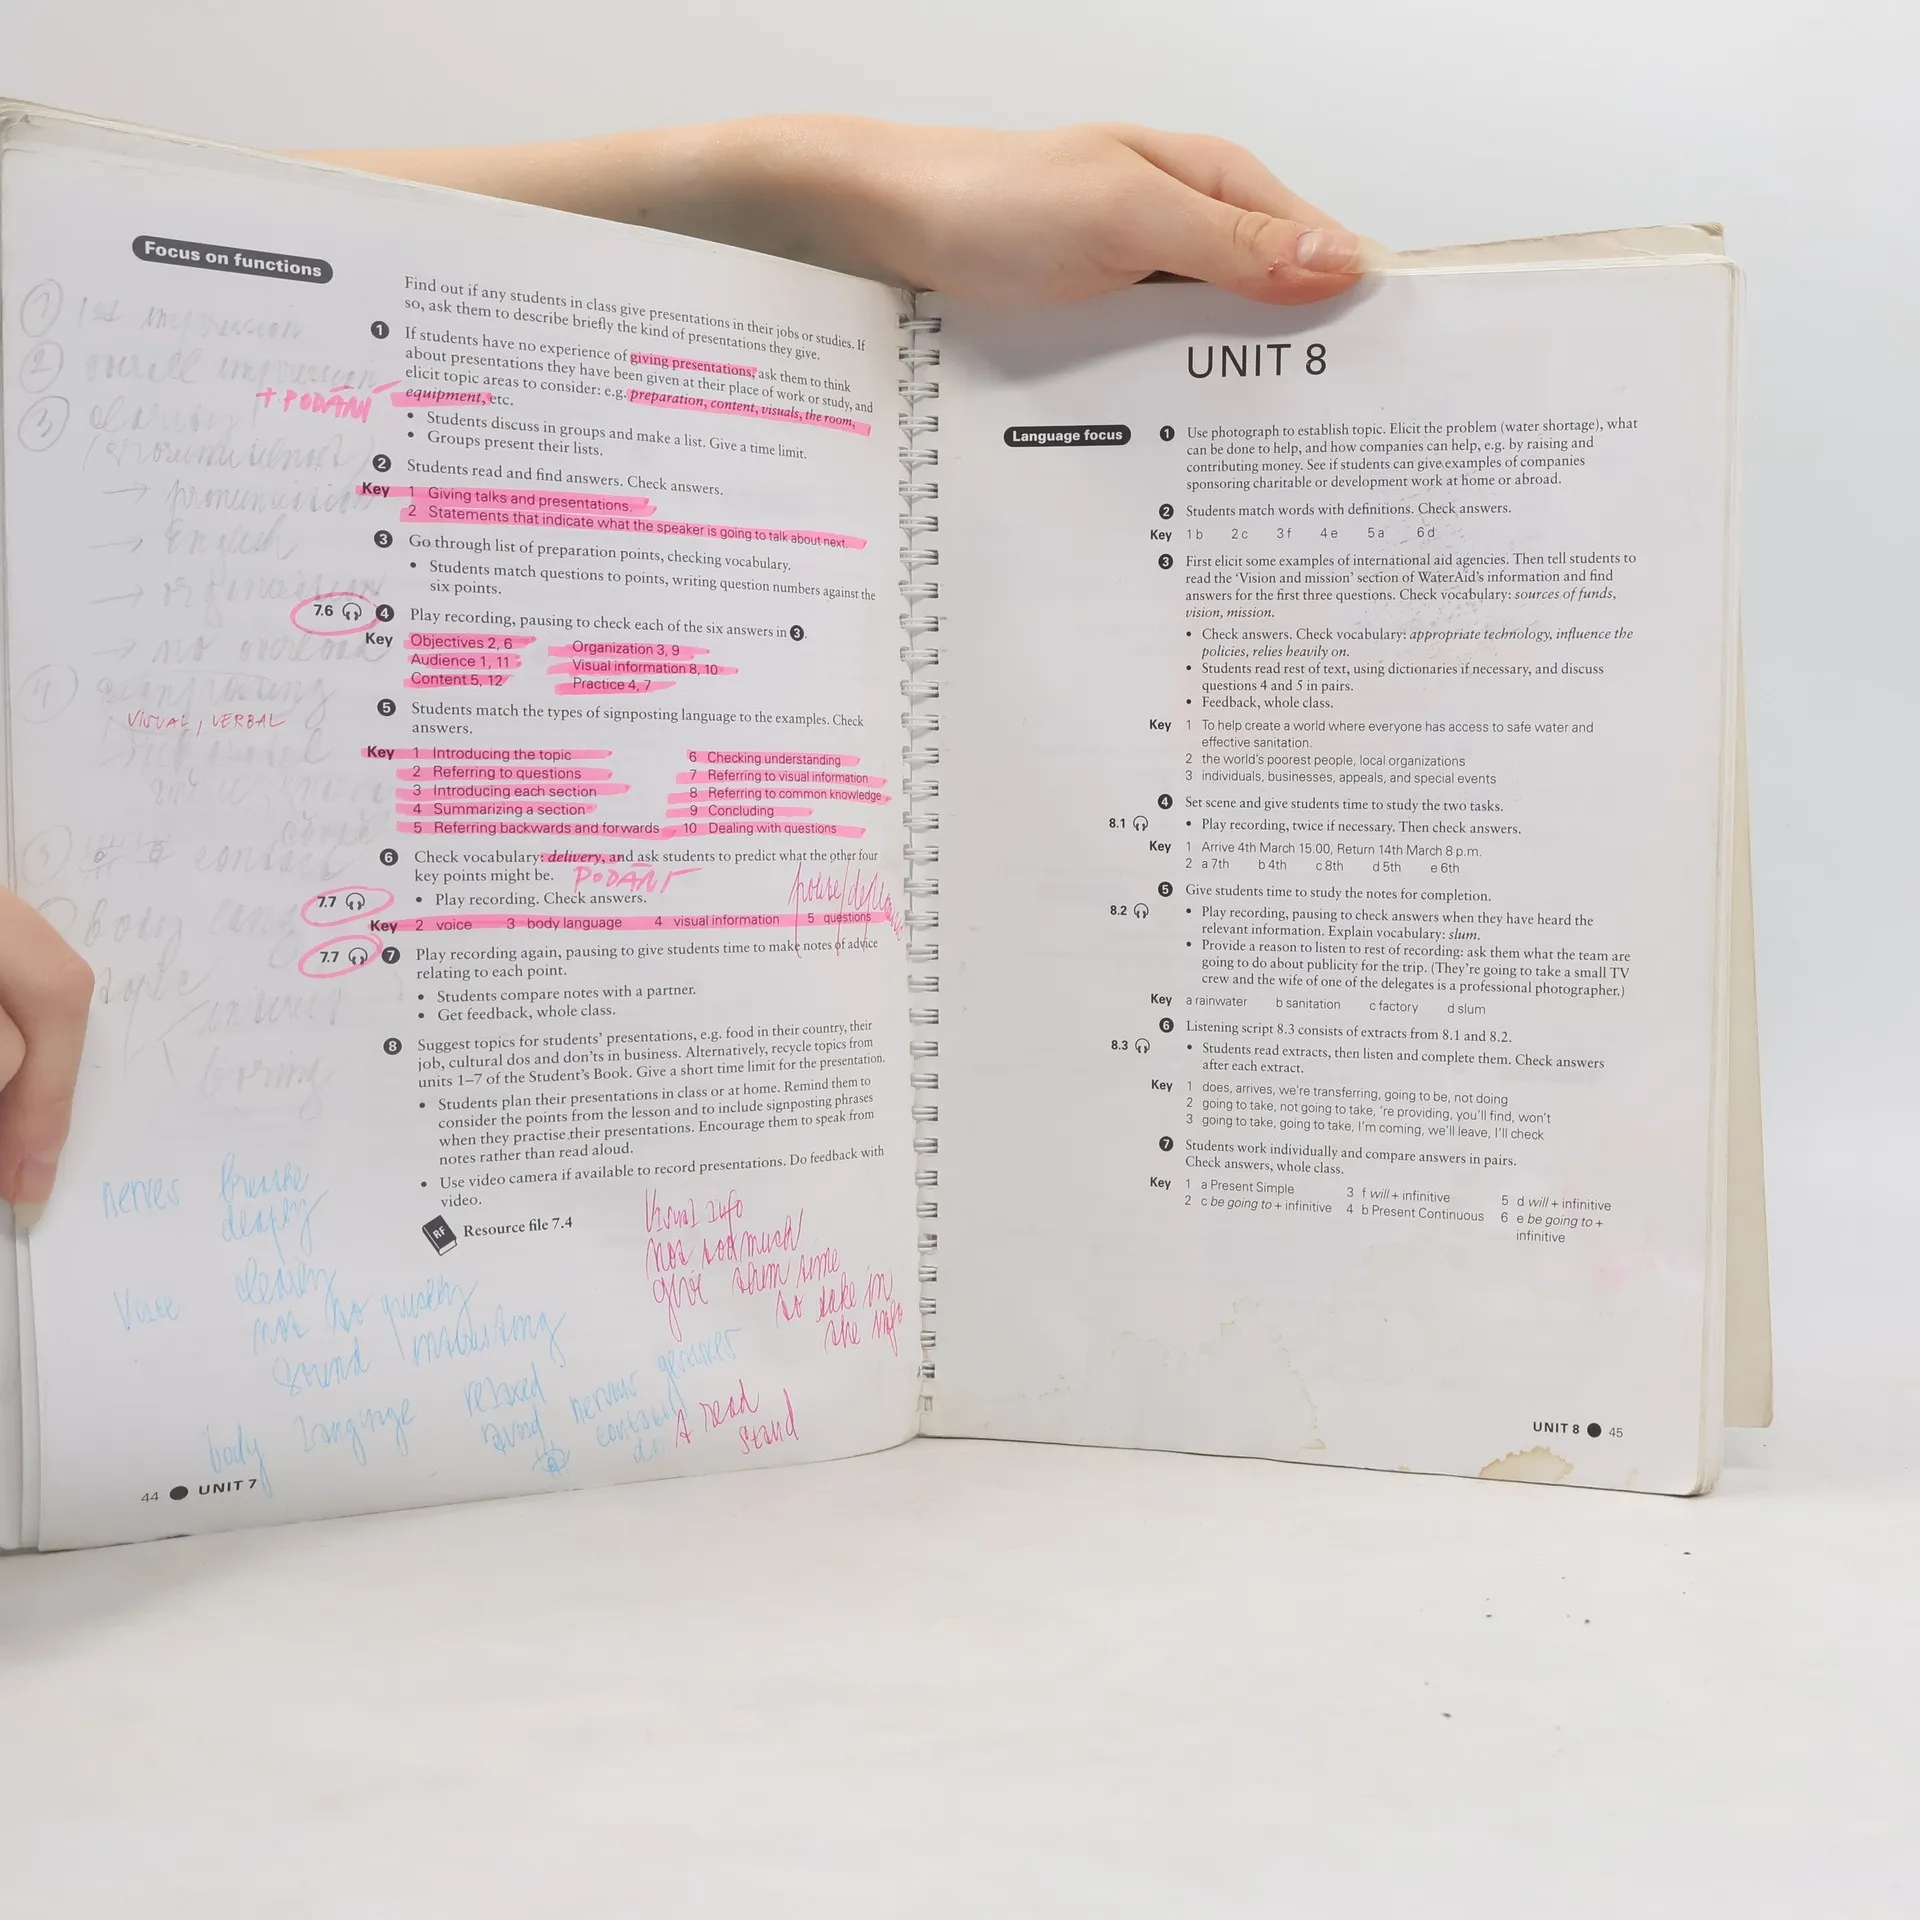 Focus on functions
Find out if any students in class give presentations in their jobs or studies. If
so, ask them to describe briefly the kind of presentations they give.
1 If students have no experience of giving presentations, ask them to think
about presentations they have been given at their place of work or study, and
elicit topic areas to consider: e.g. preparation, content, visuals, the room,
equipment, etc.
+ PODÁNÍ
• Students discuss in groups and make a list. Give a time limit.
• Groups present their lists.
2 Students read and find answers. Check answers.
Key 1 Giving talks and presentations.
2 Statements that indicate what the speaker is going to talk about next.
3 Go through list of preparation points, checking vocabulary.
• Students match questions to points, writing question numbers against the
six points.
7.6 4 Play recording, pausing to check each of the six answers in 3.
Key Objectives 2, 6 Organization 3, 9
Audience 1, 11 Visual information 8, 10
Content 5, 12 Practice 4, 7
5 Students match the types of signposting language to the examples. Check
answers.
Key 1 Introducing the topic 6 Checking understanding
2 Referring to questions 7 Referring to visual information
3 Introducing each section 8 Referring to common knowledge
4 Summarizing a section 9 Concluding
5 Referring backwards and forwards 10 Dealing with questions
6 Check vocabulary: delivery, and ask students to predict what the other four
key points might be.
PODÁNÍ
7.7 • Play recording. Check answers.
Key 2 voice 3 body language 4 visual information 5 questions
7.7 7 Play recording again, pausing to give students time to make notes of advice
relating to each point.
• Students compare notes with a partner.
• Get feedback, whole class.
8 Suggest topics for students' presentations, e.g. food in their country, their
job, cultural dos and don'ts in business. Alternatively, recycle topics from
units 1–7 of the Student's Book. Give a short time limit for the presentation.
• Students plan their presentations in class or at home. Remind them to
consider the points from the lesson and to include signposting phrases
when they practise their presentations. Encourage them to speak from
notes rather than read aloud.
• Use video camera if available to record presentations. Do feedback with
video.
RF Resource file 7.4
1 1st impression
2 overall impression
3
→ pronunciation
→ English
→ organisation
→ no overload
4 signposting
VISUAL, VERBAL
5 contact
body lang
nerves breathe
deeply
Voice clearly
not so quickly
sound interesting
body language relaxed
avoid nervous gestures
contact
Visual info
not too much
give them time
to take in
the info
read
stand
44 UNIT 7
UNIT 8
Language focus
1 Use photograph to establish topic. Elicit the problem (water shortage), what
can be done to help, and how companies can help, e.g. by raising and
contributing money. See if students can give examples of companies
sponsoring charitable or development work at home or abroad.
2 Students match words with definitions. Check answers.
Key 1 b 2 c 3 f 4 e 5 a 6 d
3 First elicit some examples of international aid agencies. Then tell students to
read the 'Vision and mission' section of WaterAid's information and find
answers for the first three questions. Check vocabulary: sources of funds,
vision, mission.
• Check answers. Check vocabulary: appropriate technology, influence the
policies, relies heavily on.
• Students read rest of text, using dictionaries if necessary, and discuss
questions 4 and 5 in pairs.
• Feedback, whole class.
Key 1 To help create a world where everyone has access to safe water and
effective sanitation.
2 the world's poorest people, local organizations
3 individuals, businesses, appeals, and special events
4 Set scene and give students time to study the two tasks.
8.1 • Play recording, twice if necessary. Then check answers.
Key 1 Arrive 4th March 15.00, Return 14th March 8 p.m.
2 a 7th b 4th c 8th d 5th e 6th
5 Give students time to study the notes for completion.
8.2 • Play recording, pausing to check answers when they have heard the
relevant information. Explain vocabulary: slum.
• Provide a reason to listen to rest of recording: ask them what the team are
going to do about publicity for the trip. (They're going to take a small TV
crew and the wife of one of the delegates is a professional photographer.)
Key a rainwater b sanitation c factory d slum
6 Listening script 8.3 consists of extracts from 8.1 and 8.2.
8.3 • Students read extracts, then listen and complete them. Check answers
after each extract.
Key 1 does, arrives, we're transferring, going to be, not doing
2 going to take, not going to take, 're providing, you'll find, won't
3 going to take, going to take, I'm coming, we'll leave, I'll check
7 Students work individually and compare answers in pairs.
Check answers, whole class.
Key 1 a Present Simple 3 f will + infinitive 5 d will + infinitive
2 c be going to + infinitive 4 b Present Continuous 6 e be going to +
infinitive
UNIT 8 45